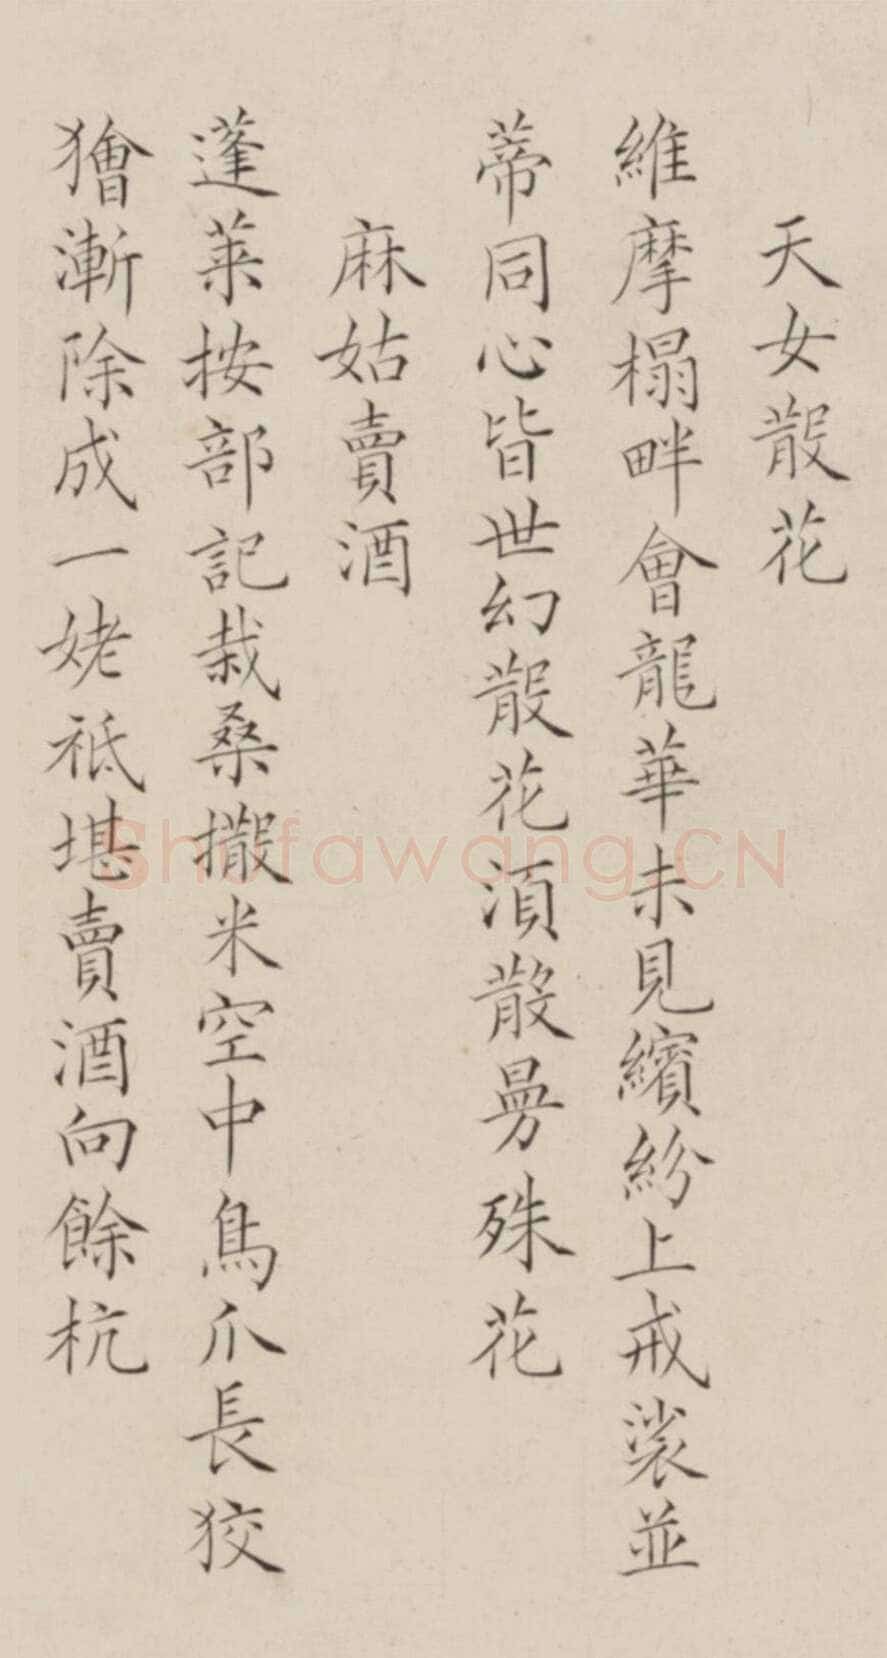 天女散花
維摩榻畔會龍華未見繽紛上戒裟並
蒂同心皆世幻散花須散曼殊花
麻姑賣酒
蓬萊按部記栽桑撒米空中鳥爪長狡
獪漸除成一姥祗堪賣酒向餘杭
Shufawang.CN